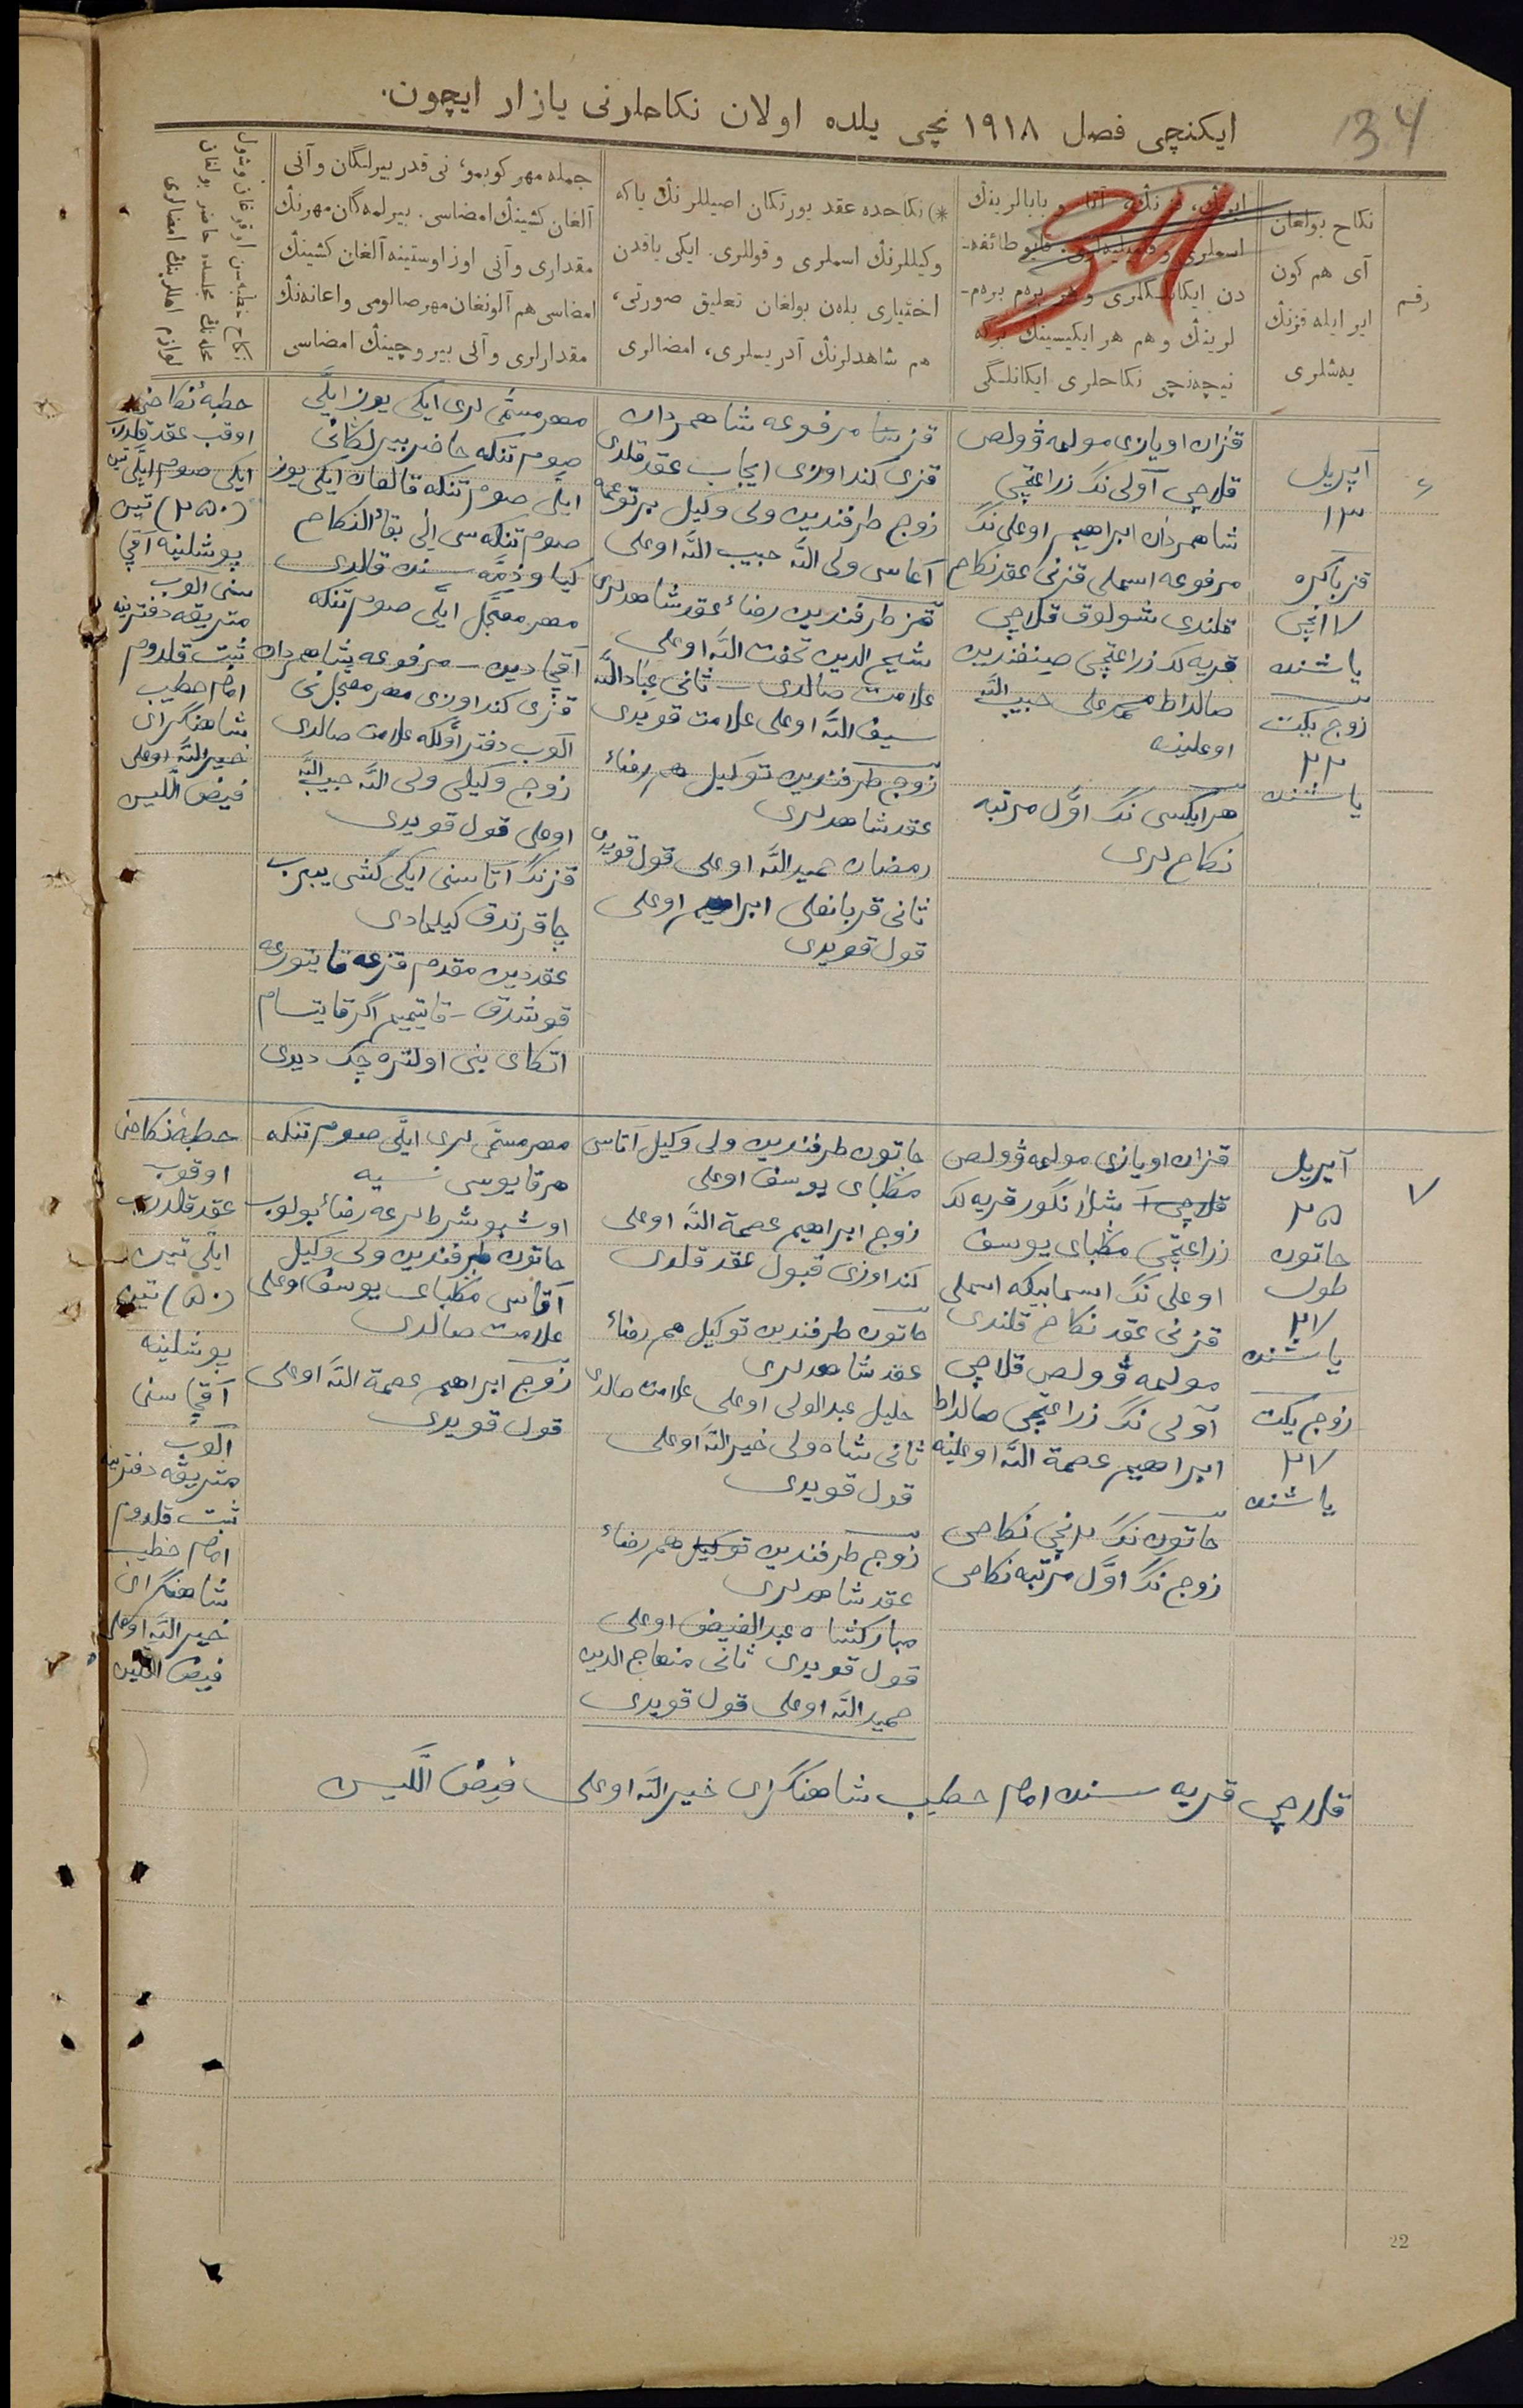 ایكنچی فصل ۱۹۱۸ نچی یلده اولان نكاحلرنی یازار ایچون.
34
34
رقم
نكاح بولغان
آی هم كون
ایر ایله قزنڭ
یەشلری
ایرنڭ، قزنڭ، آتا و بابالرینڭ
اسملری و فامیلیەلری. قایو طائفە-
دن ایكانلكلری و هر برەم برەم-
لرینڭ و هم هر ایكیسینڭ برگه
نیچەنچی نكاحلری ایكانلیگی
*) نكاحده عقد یورتكان اصیللرنڭ یاكه
وكیللرنڭ اسملری و قوللری. ایكی یاقدن
اختیاری بلەن بولغان تعلیق صورتی،
هم شاهدلرنڭ آدریسلری، امضالری
جمله مهر كوبمو، نی قدر بیرلگان و آنی
آلغان كشینڭ امضاسی. بیرلمەگان مهرنڭ
مقداری و آنی اوز اوستینه آلغان كشینڭ
امضاسی هم آلونغان مهر صالومی و اعانەنڭ
مقدارلری و آلی بیروچینڭ امضاسی
نكاح خطبەسن اوقوغان وشول
محلەنڭ مجلسده حاضر بولغان
لوازم اهللرینڭ امضالری
۶
آپریل
۱۳
قز باكره
۱۷نچی
یاشنده
زوج یكت
۲۲
یاشنده
قزان اویازی مولمه ڤولص
قلاچی آولی نڭ زراعتچی
شاهمردان ابراهیم اوغلی نڭ
مرفوعه اسملی قزنی عقد نكاح
قلندی شولوق قلاچی
قریه لك زراعتچی صینفندین
صالداط محمدعلی حبیب الله
اوغلینه
هر ایكیسی نڭ اول مرتبه
نكاح لری
قز مرفوعه شاهمردان
قزی كنداوزی ایجاب عقد قلدی
زوج طرفندین ولی وكیل برتوغمه
آغاسی ولی الله حبیب الله اوغلی
قز طرفندین رضاء عقد شاهدلری
شیخ الدین تحفت الله اوغلی
علامت صالدی – ثانی عباد الله
سیف الله اوغلی علامت قویدی
زوج طرفندین توكیل هم رضاء
عقد شاهدلری
رمضان حمید الله اوغلی قول قویدی
ثانی قربانعلی ابراهیم اوغلی
قول قویدی
مهر مسمی لری ایكی یوز ایللی
صوم تنكه حاضر بیرلگانی
ایللی صوم تنكه قالغان ایكی یوز
صوم تنكه سی الی بقاء النكاح
كیاو ذمه سنده قالدی
مهر معجل ایللی صوم تنكه
آقچادین – مرفوعه شاهمردان
قزی كنداوزی مهر معجل نی
آلوب دفتر اوله علامت صالدی
زوج وكیلی ولی الله حبیب الله
اوغلی قول قویدی
قزنڭ آتاسنی ایكی كشی ییبرب
چاقرتدق كیلمادی
عقددین مقدم قزغه قایتورغه
قوشدق – قایتمیم اگر قایتسام
اتكای بنی اولتره چك دیدی
خطبۀ نكاحنی
اوقب عقد قلدرب
ایكی صوم ایللی تین
(۲۵۰) تین
پوشلینه آقچا
سنی آلوب
متریقه دفترینه
ثبت قلدوم
امام خطیب
شاهنگرای
خیر الله اوغلی
فیض اللین
۷
آپریل
۲۵
خاتون
طول
۲۷
یاشنده
زوج یكت
۲۷
یاشنده
قزان اویازی مولمه ڤولص
شلانگور قریه لك
زراعتچی مطبای یوسف
اوغلی نڭ اسمابیكه اسملی
قزنی عقد نكاح قلندی
مولمه ڤولص قلاچی
آولی نڭ زراعتچی صالداط
ابراهیم عصمة الله اوغلینه
خاتون نڭ ۲نچی نكاحی
زوج نڭ اول مرتبه نكاحی
خاتون طرفندین ولی وكیل آتاسی
مطبای یوسف اوغلی
زوج ابراهیم عصمة الله اوغلی
كنداوزی قبول عقد قلدی
خاتون طرفندین توكیل هم رضاء
عقد شاهدلری
خلیل عبدالولی اوغلی علامت صالدی
ثانی شاه ولی خیر الله اوغلی
قول قویدی
زوج طرفندین توكیل هم رضاء
عقد شاهدلری
مباركشاه عبدالفیض اوغلی
قول قویدی ثانی منهاج الدین
حمید الله اوغلی قول قویدی
مهر مسمی لری ایللی صوم تنكه
هر قایوسی نسیه
اوشبو شرطلرغه رضاء بولوب
خاتون طرفندین ولی وكیل
آتاسی مطبای یوسف اوغلی
علامت صالدی
زوج ابراهیم عصمة الله اوغلی
قول قویدی
خطبۀ نكاحنی
اوقوب
عقد قلدرب
ایللی تین
(۵۰) تین
پوشلینه
آقچا سنی
آلوب
متریقه دفترینه
ثبت قلدوم
امام خطیب
شاهنگرای
خیر الله اوغلی
فیض اللین
قلاچی قریه سنده امام خطیب شاهنگرای خیر الله اوغلی فیض اللین
22